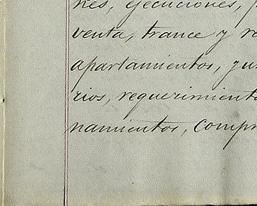 nes, ejecuciones,
venta, trance y re
apartamientos, ju
rios, requerimiento
namientos, compr